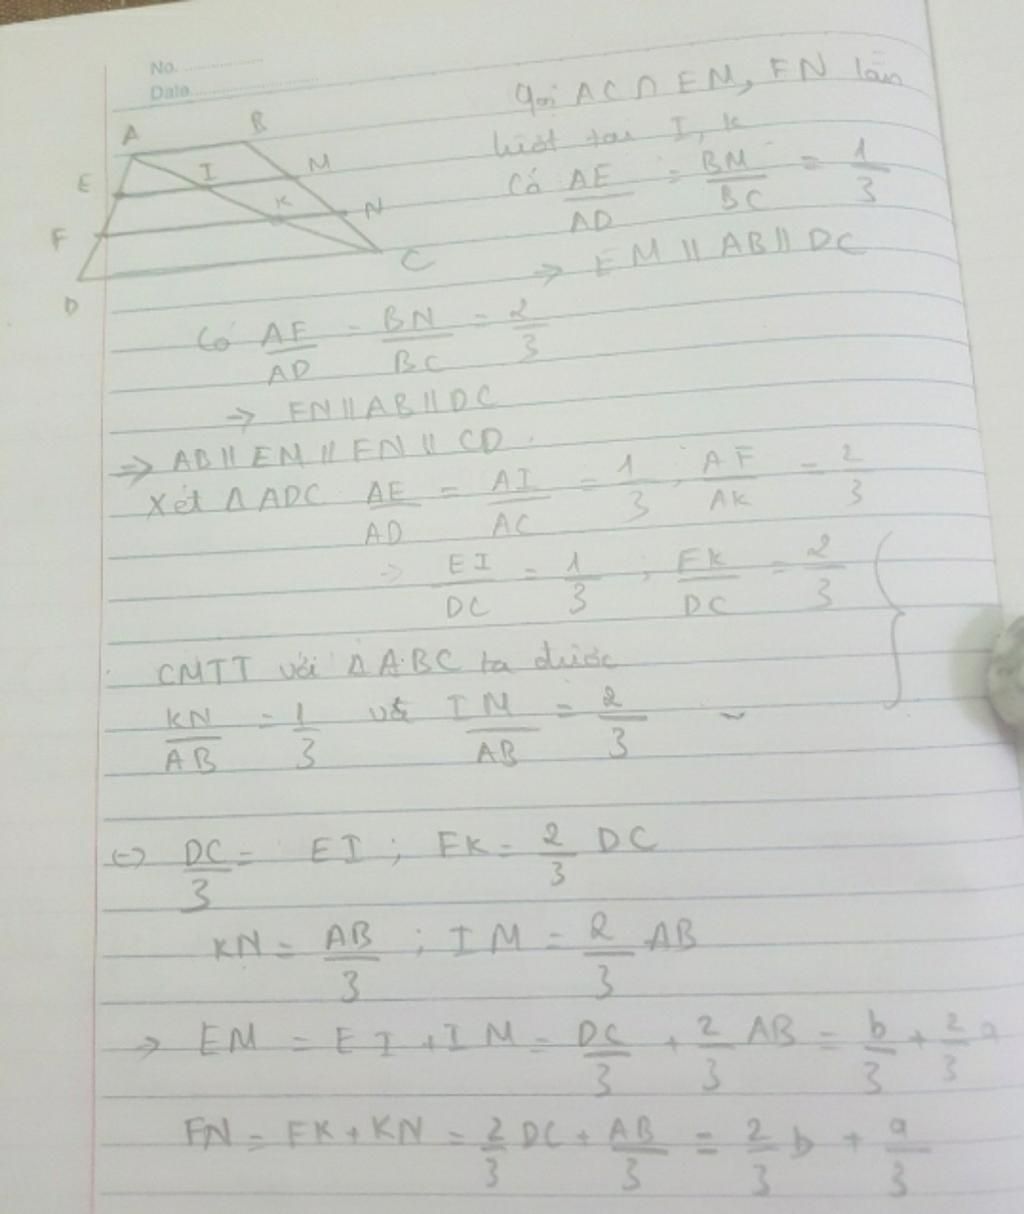 No.
Date
A B
Gọi AC ∩ EM, FN lần
lượt tại I, K
E I M
F K N
D C
Có AE/AD = BM/BC = 1/3
→ EM // AB // DC
Có AF/AD = BN/BC = 2/3
→ FN // AB // DC
⇒ AB // EM // FN // CD.
Xét Δ ADC AE/AD = AI/AC = 1/3 ; AF/AK = 2/3
→ EI/DC = 1/3 ; FK/DC = 2/3
CMTT với Δ ABC ta được
KN/AB = 1/3 và IM/AB = 2/3
⇔ DC/3 = EI ; FK = 2/3 DC
KN = AB/3 ; IM = 2/3 AB
→ EM = EI + IM = DC/3 + 2/3 AB = b/3 + 2/3 a
FN = FK + KN = 2/3 DC + AB/3 = 2/3 b + a/3